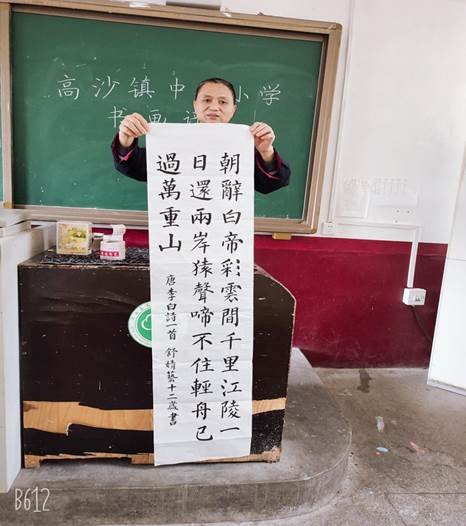 高沙镇中 小学
书画
朝辭白帝彩雲間千里江陵一
日還兩岸猿聲啼不住輕舟已
過萬重山
唐李白詩一首 舒婧藝十二歲書
B612